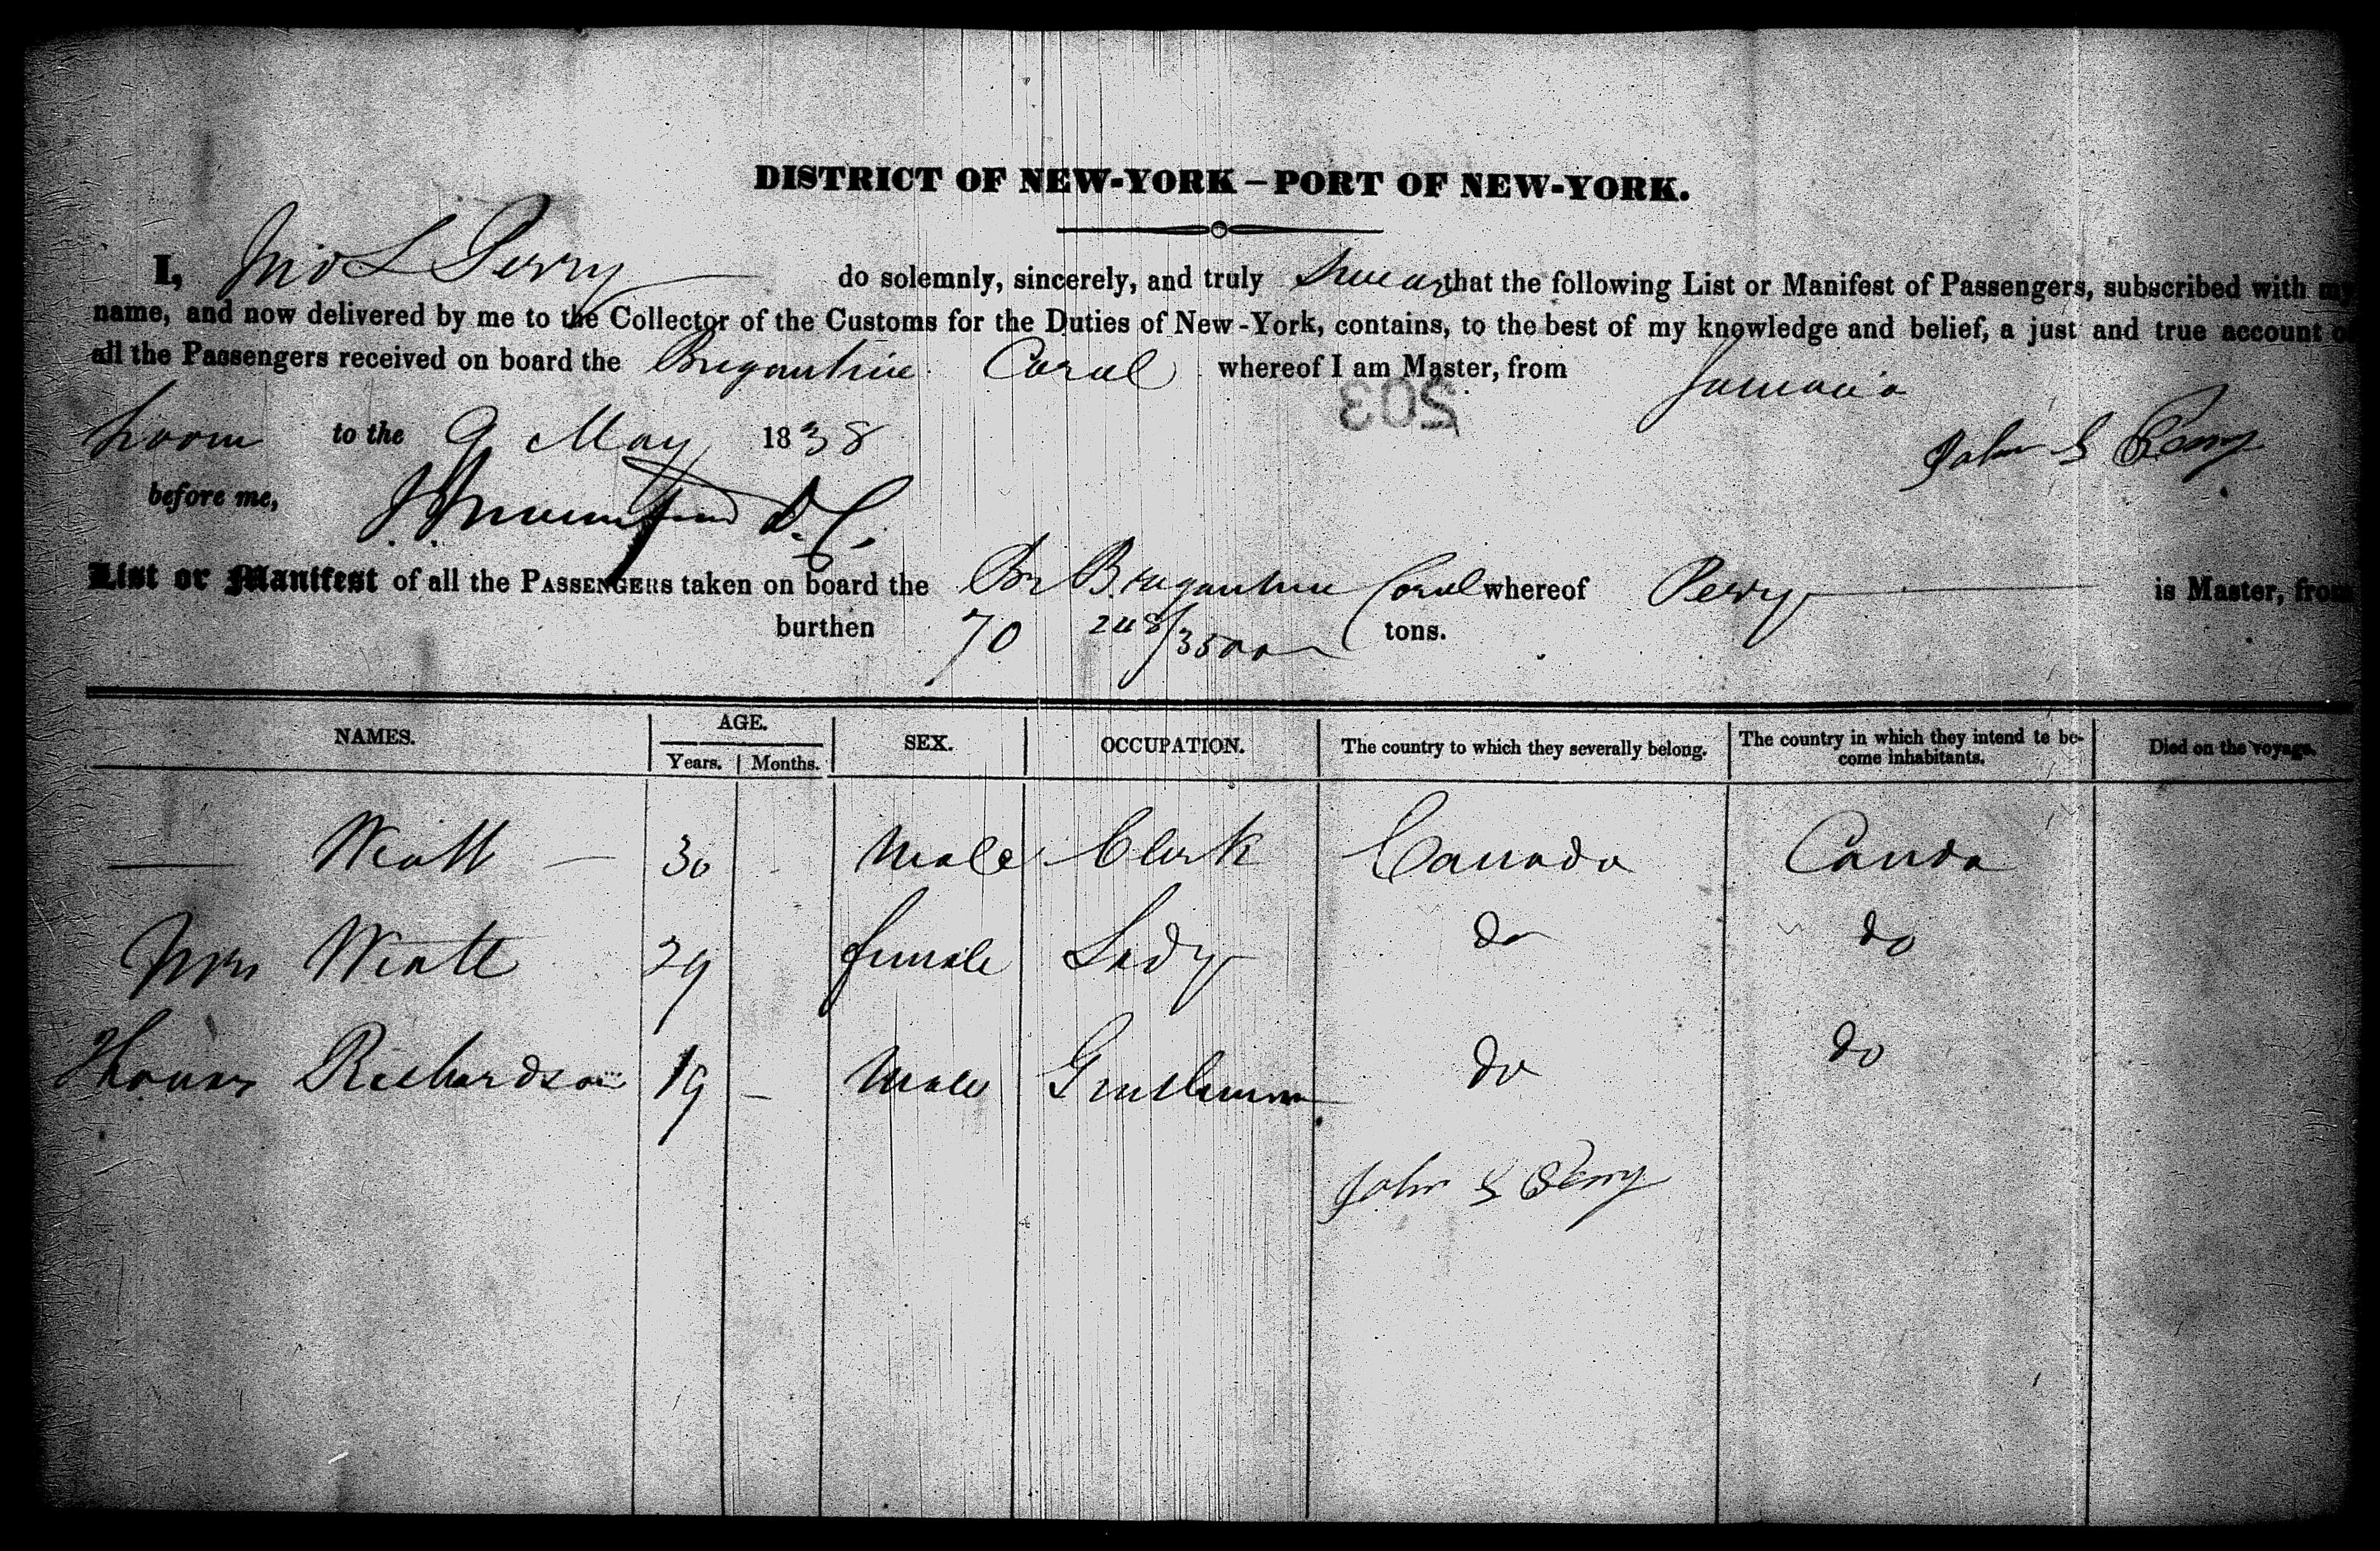 DISTRICT OF NEW-YORK – PORT OF NEW-YORK.
I, Jno L Perry do solemnly, sincerely, and truly Swear that the following List or Manifest of Passengers, subscribed with my
name, and now delivered by me to the Collector of the Customs for the Duties of New-York, contains, to the best of my knowledge and belief, a just and true account of
all the Passengers received on board the Brigantine Coral whereof I am Master, from Jamaica
203
Sworn to the 9 May 1838 John S Perry
before me, D.C.
List or Manifest of all the PASSENGERS taken on board the Br Brigantine Coral whereof Perry is Master, from
burthen 70 248/3500 tons.
NAMES. AGE. SEX. OCCUPATION. The country to which they severally belong. The country in which they intend to be- Died on the voyage.
Years. Months. come inhabitants.
Wiatt 30 Male Clerk Canada Canda
Mrs Wiatt 29 female Lady do do
Thomas Richardson 19 – Male Gentleman do do
John S Perry